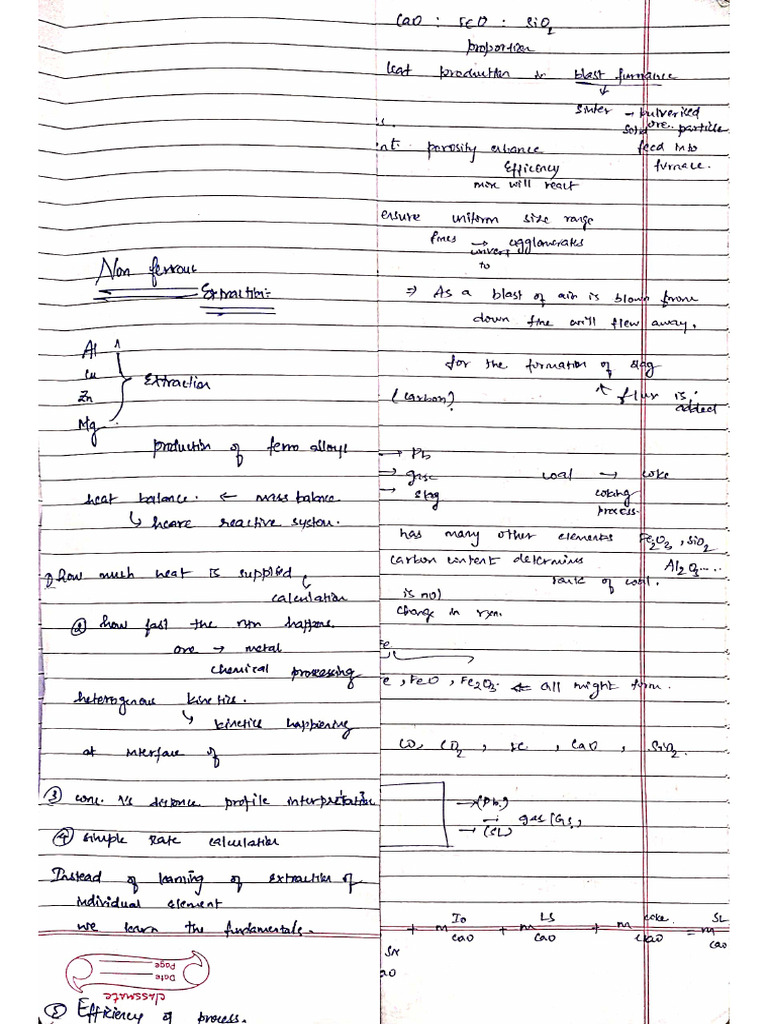 Non ferrous
Extraction:-
Al
Cu
Zn
Mg
Extraction
production of ferro alloys
heat balance. ← mass balance
↳ heare reactive system.
① how much heat is supplied
↳ calculation
② how fast the rxn happens.
ore → metal
chemical processing
heterogenous kinetics.
↳ kinetics happening
at interface of
③ conc. vs distance profile interpretation
④ simple rate calculation
Instead of learning of extraction of
individual element
we learn the fundamentals.
classmate
Date
Page
⑤ Efficiency of process.
CaO : FeO : SiO2
proportion
lead production in blast furnance
↓
sinter → pulverised
ore particle
solid
feed into
furnace.
s.
int: porosity enhance
Efficency
mix will react
ensure uniform size range
fines → agglomerates
convert
to
⇒ As a blast of air is blown from
down fine will flew away.
for the formation of slag
↑ flux is
added
(carbon?)
→ Pb
→ gase
→ slag
coal → coke
coking
process.
has many other elements Fe2O3, SiO2
Al2O3....
carbon content determins
rank of coal.
is no)
change in rxn.
Fe
e, FeO, Fe2O3. ⇐ all might form.
CO, CO2, CaO, SiO2
→ (Pb)
→ gas (Gs)
→ (SL)
+ m Io CaO + m LS CaO + m coke CaO = m SL CaO
SR
aO